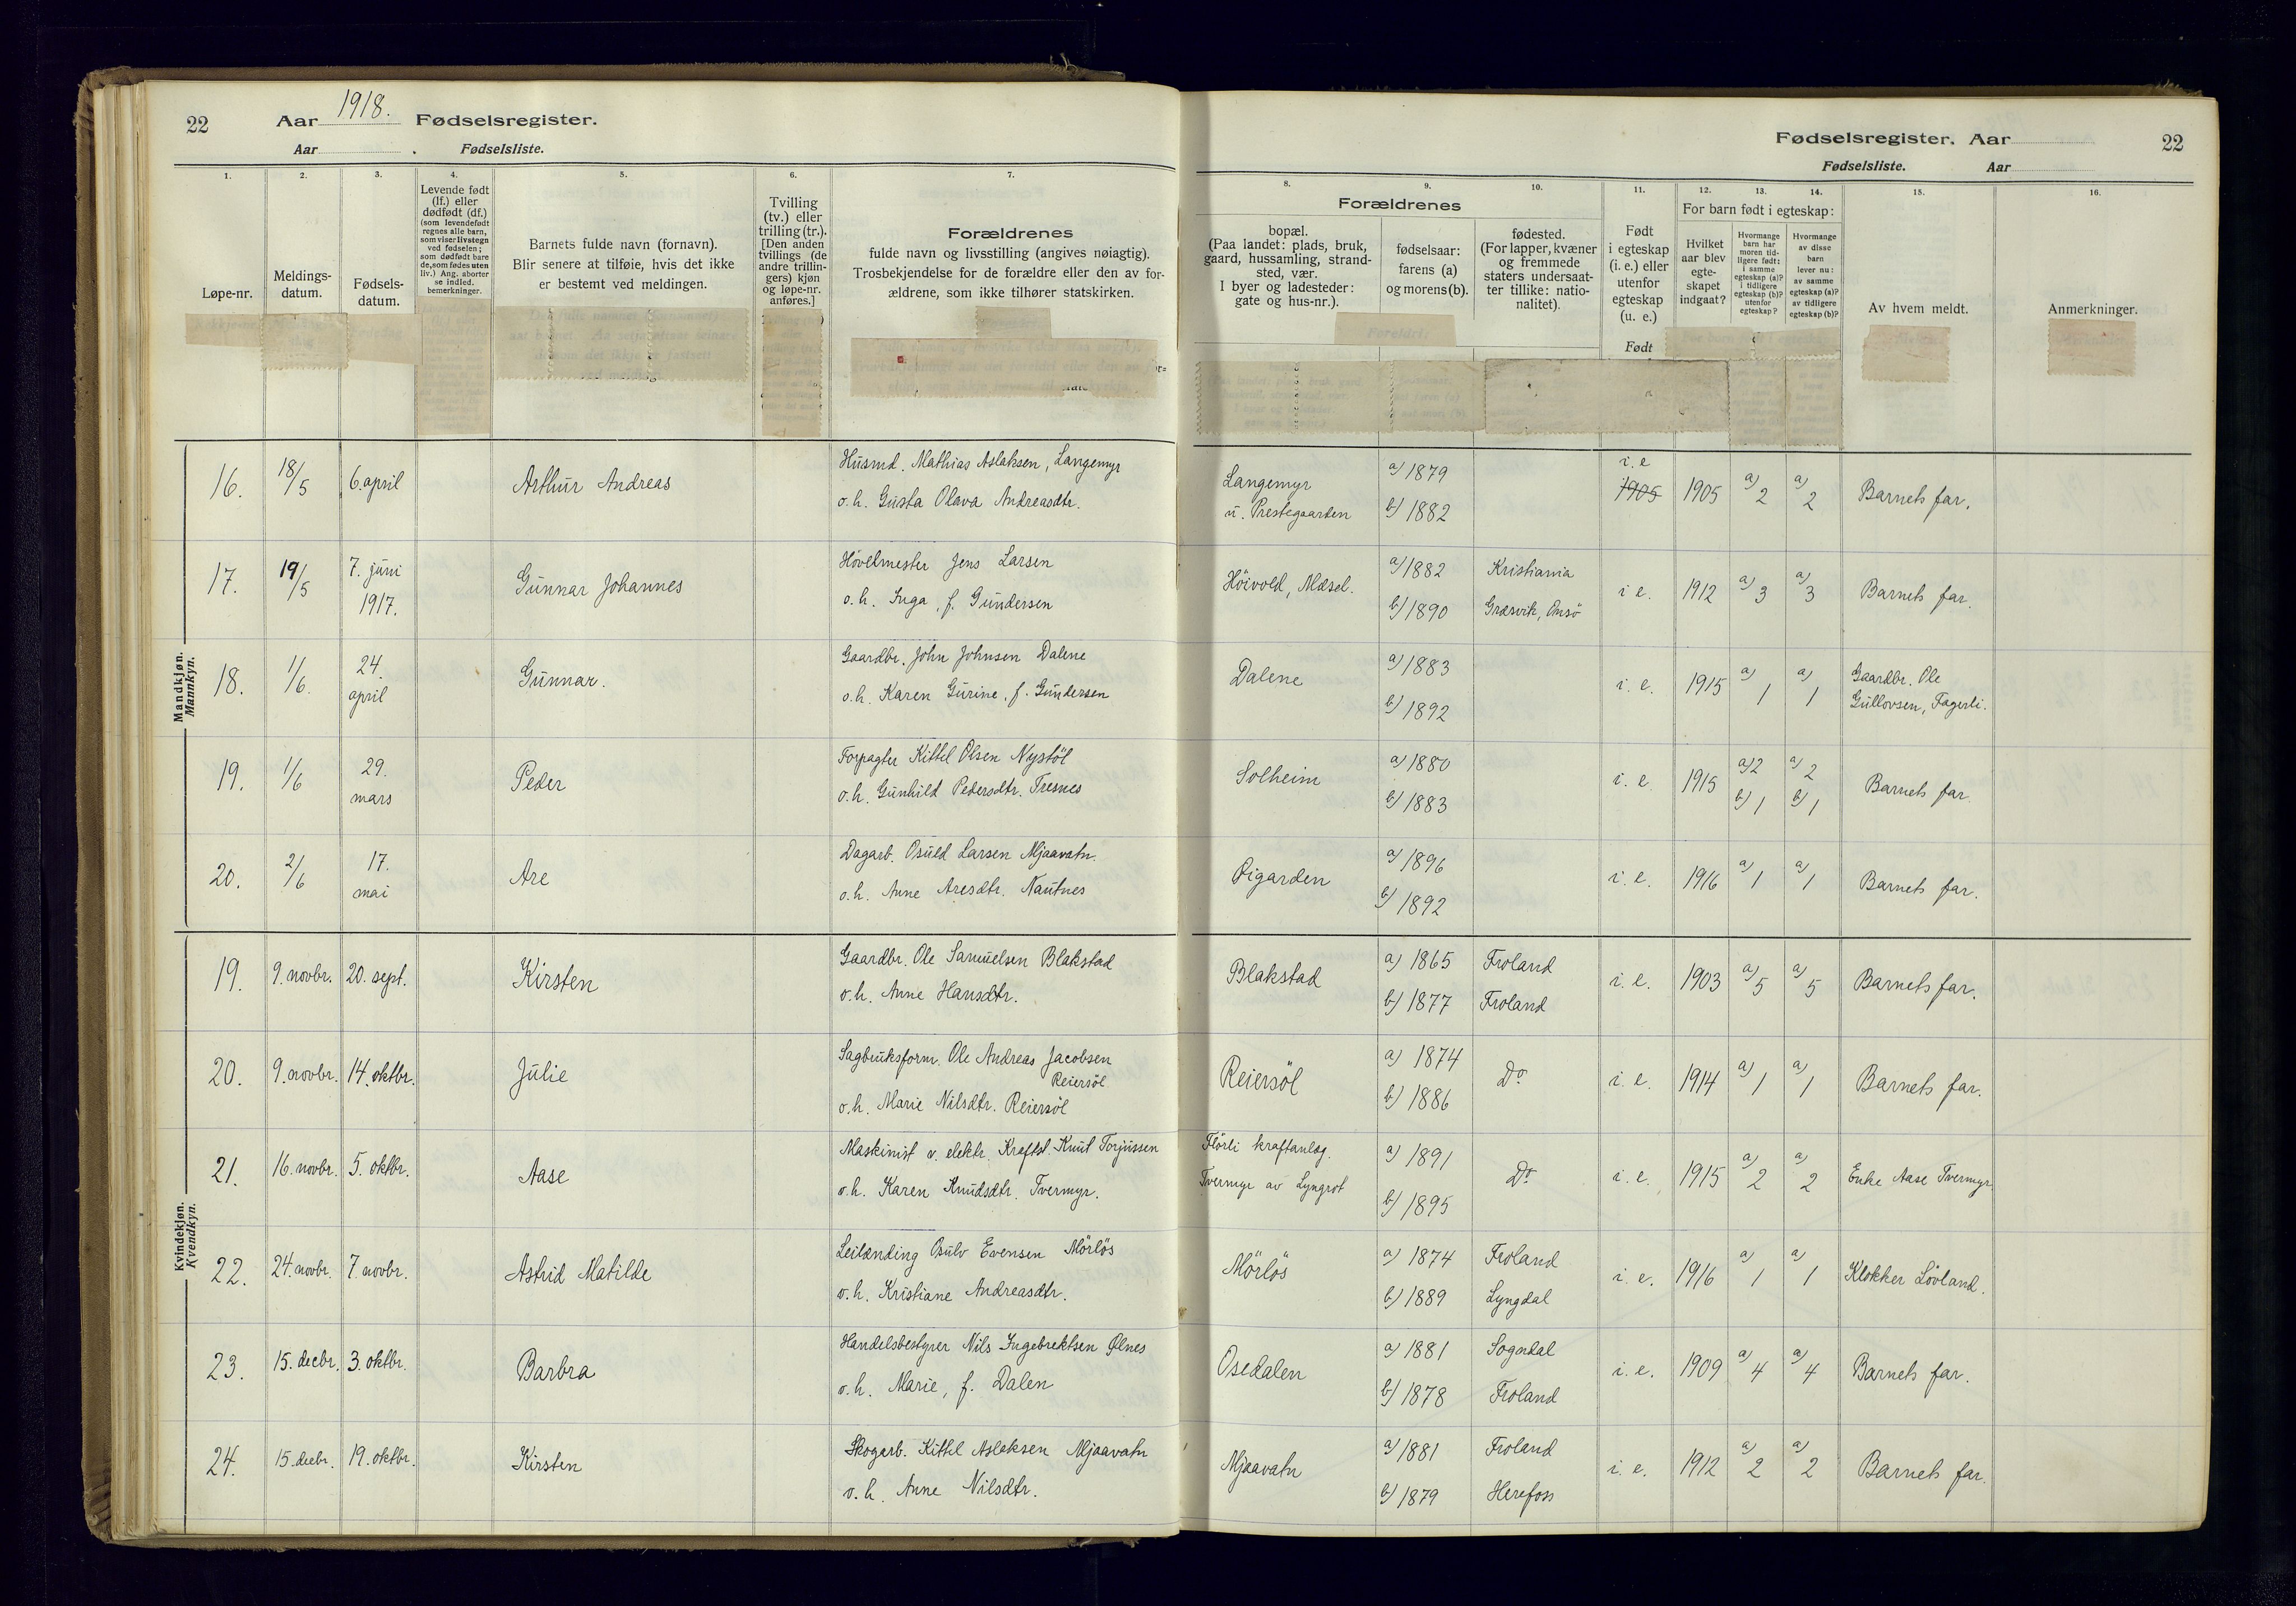 22
Aar 1918. Fødselsregister.
Aar . Fødselsliste.
Fødselsregister. Aar 22
Fødselsliste. Aar
1. 2. 3. 4. 5. 6. 7.
8. 9. 10. 11. 12. 13. 14. 15. 16.
Løpe-nr.
Meldings-
datum.
Fødsels-
datum.
Levende født
(lf.) eller
dødfødt (df.)
(som levendefødt
regnes alle barn,
som viser livstegn
ved fødselen;
som dødfødt bare
de, som fødes uten
liv.) Ang. aborter
se indled.
bemerkninger.
Barnets fulde navn (fornavn).
Blir senere at tilføie, hvis det ikke
er bestemt ved meldingen.
Tvilling
(tv.) eller
trilling (tr.).
[Den anden
tvillings (de
andre trillin-
gers) kjøn
og løpe-nr.
anføres.]
Forældrenes
fulde navn og livsstilling (angives nøiagtig).
Trosbekjendelse for de forældre eller den av for-
ældrene, som ikke tilhører statskirken.
Forældrenes
bopæl.
(Paa landet: plads, bruk,
gaard, hussamling, strand-
sted, vær.
I byer og ladesteder:
gate og hus-nr.).
fødselsaar:
farens (a)
og morens (b).
fødested.
(For lapper, kvæner
og fremmede
staters undersaat-
ter tillike: natio-
nalitet).
Født
i egteskap
(i. e.) eller
utenfor
egteskap
(u. e.)
Født
For barn født i egteskap:
Hvilket
aar blev
egte-
skapet
indgaat?
Hvormange
barn har
moren tid-
ligere født:
i samme
egteskap (a)?
i tidligere
egteskap (b)?
utenfor
egteskap?
Hvormange
av disse
barn
lever nu:
av samme
egteskap (a)?
av tidligere
egteskap (b)?
Av hvem meldt.
Anmerkninger.
Mandkjøn.
Mannkyn.
16. 18/5 6. april Arthur Andreas Husmd. Mathias Aslaksen, Langemyr
o. h. Gusta Olava Andreasdtr.
Langemyr
u. Prestegaarden a) 1879
b) 1882 i. e
1905 1905 a) 2 a) 2 Barnets far.
17. 19/5 7. juni
1917. Gunnar Johannes Høvelmester Jens Larsen
o. h. Inga, f. Gundersen
Höivold, Mæsel. a) 1882 Kristiania
b) 1890 Græsvik, Onsö i e. 1912 a) 3 a) 3 Barnets far.
18. 1/6. 24.
april Gunnar. Gaardbr. John Johnsen Dalene
o. h. Karen Gurine, f. Gundersen
Dalene a) 1883
b) 1892 i. e. 1915 a) 1 a) 1 Gaardbr. Ole
Gullovsen, Fagerli.
19. 1/6 29.
mars Peder Forpagter Kittel Olsen Nystöl
o. h. Gunhild Pedersdtr. Tresnes
Solheim a) 1880
b) 1883 i. e 1915 a) 2 a) 2
b) 1 b) 1 Barnets far.
20. 2/6 17.
mai Are Dagarb. Osuld Larsen Mjaavatn.
o. h. Anne Aresdtr. Nautnes
Øigarden a) 1896
b) 1892 i. e. 1916 a) 1 a) 1 Barnets far.
Kvindekjøn.
Kvendkyn.
19. 9. novbr. 20. sept. Kirsten Gaardbr. Ole Samuelsen Blakstad
o. h. Anne Hansdtr.
Blakstad a) 1865 Froland
b) 1877 Froland i. e. 1903 a) 5 a) 5 Barnets far.
20. 9. novbr. 14. oktbr. Julie Sagbruksform. Ole Andreas Jacobsen
Reiersöl
o. h. Marie Nilsdtr. Reiersöl
Reiersöl a) 1874
b) 1886 Do i. e. 1914 a) 1 a) 1 Barnets far.
21. 16. novbr. 5. oktbr. Aase Maskinist v. elektr. Kraftst. Knut Torjussen
o. h. Karen Knudsdtr. Tvermyr.
Flörli kraftanlæg.
Tvermyr av Lyngrot a) 1891
b) 1895 Do i. e. 1915 a) 2 a) 2 Enke Aase Tvermyr.
22. 24. novbr. 7. novbr. Astrid Matilde Leilænding Osulv Evensen Mörlös
o. h. Kristiane Andreasdtr.
Mörlös a) 1874 Froland
b) 1889 Lyngdal i. e. 1916 a) 1 a) 1 Klokker Lövland.
23. 15. decbr. 3. oktbr. Barbra Handelsbestyrer Nils Ingebrektsen Ølnes
o. h. Marie, f. Dalen
Osedalen a) 1881 Sogndal
b) 1878 Froland i. e. 1909 a) 4 a) 4 Barnets far.
24. 15. decbr. 19. oktbr. Kirsten Skogarb. Kittel Aslaksen Mjaavatn
o. h. Anne Nilsdtr.
Mjaavatn a) 1881 Froland
b) 1879 Herefoss i. e. 1912 a) 2 a) 2 Barnets far.